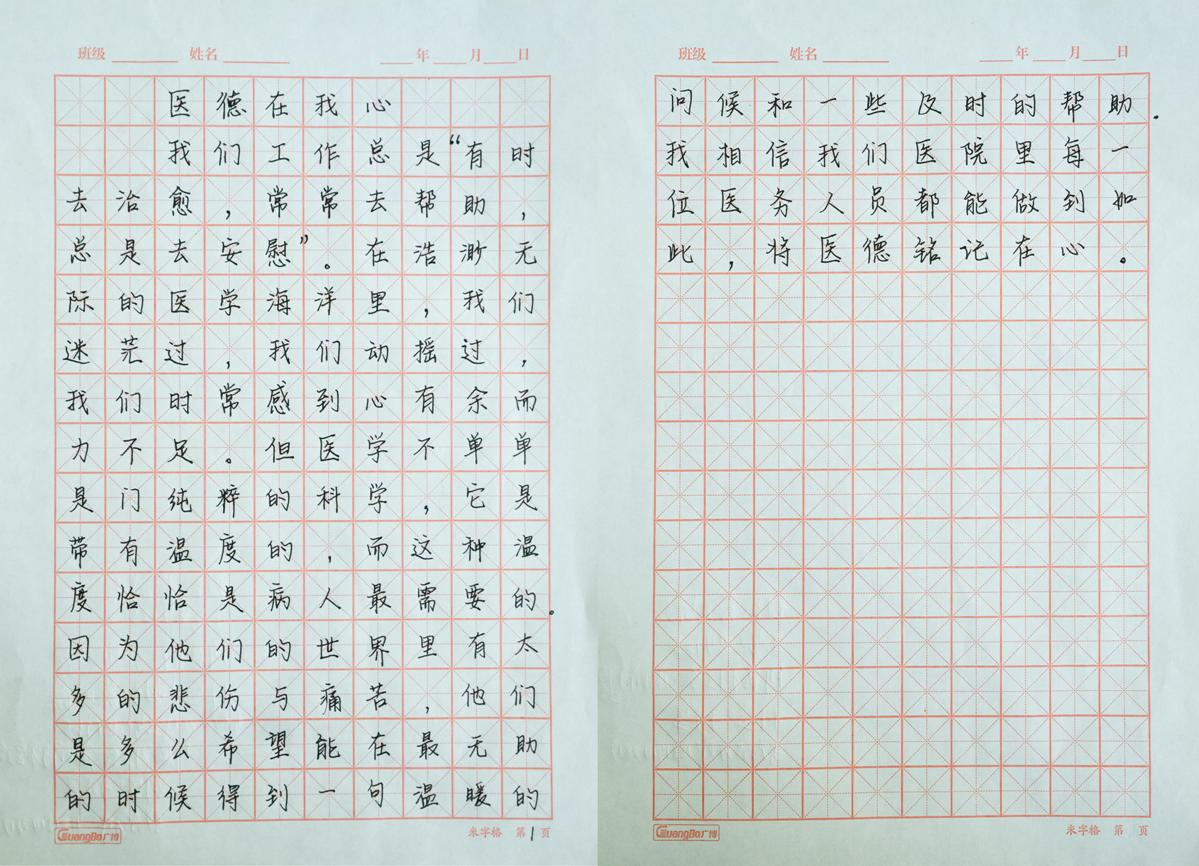 班级 姓名 年 月 日
医德在我心
我们工作总是“有时
去治愈，常常去帮助，
总是去安慰”。在浩渺无
际的医学海洋里，我们
迷茫过，我们动摇过，
我们时常感到心有余而
力不足。但医学不单单
是门纯粹的科学，它是
带有温度的，而这种温
度恰恰是病人最需要的。
因为他们的世界里有太
多的悲伤与痛苦，他们
是多么希望能在最无助
的时候得到一句温暖的
GuangBo广博 米字格 第1页
班级 姓名 年 月 日
问候和一些及时的帮助。
我相信我们医院里每一
位医务人员都能做到如
此，将医德铭记在心。
GuangBo广博 米字格 第 页